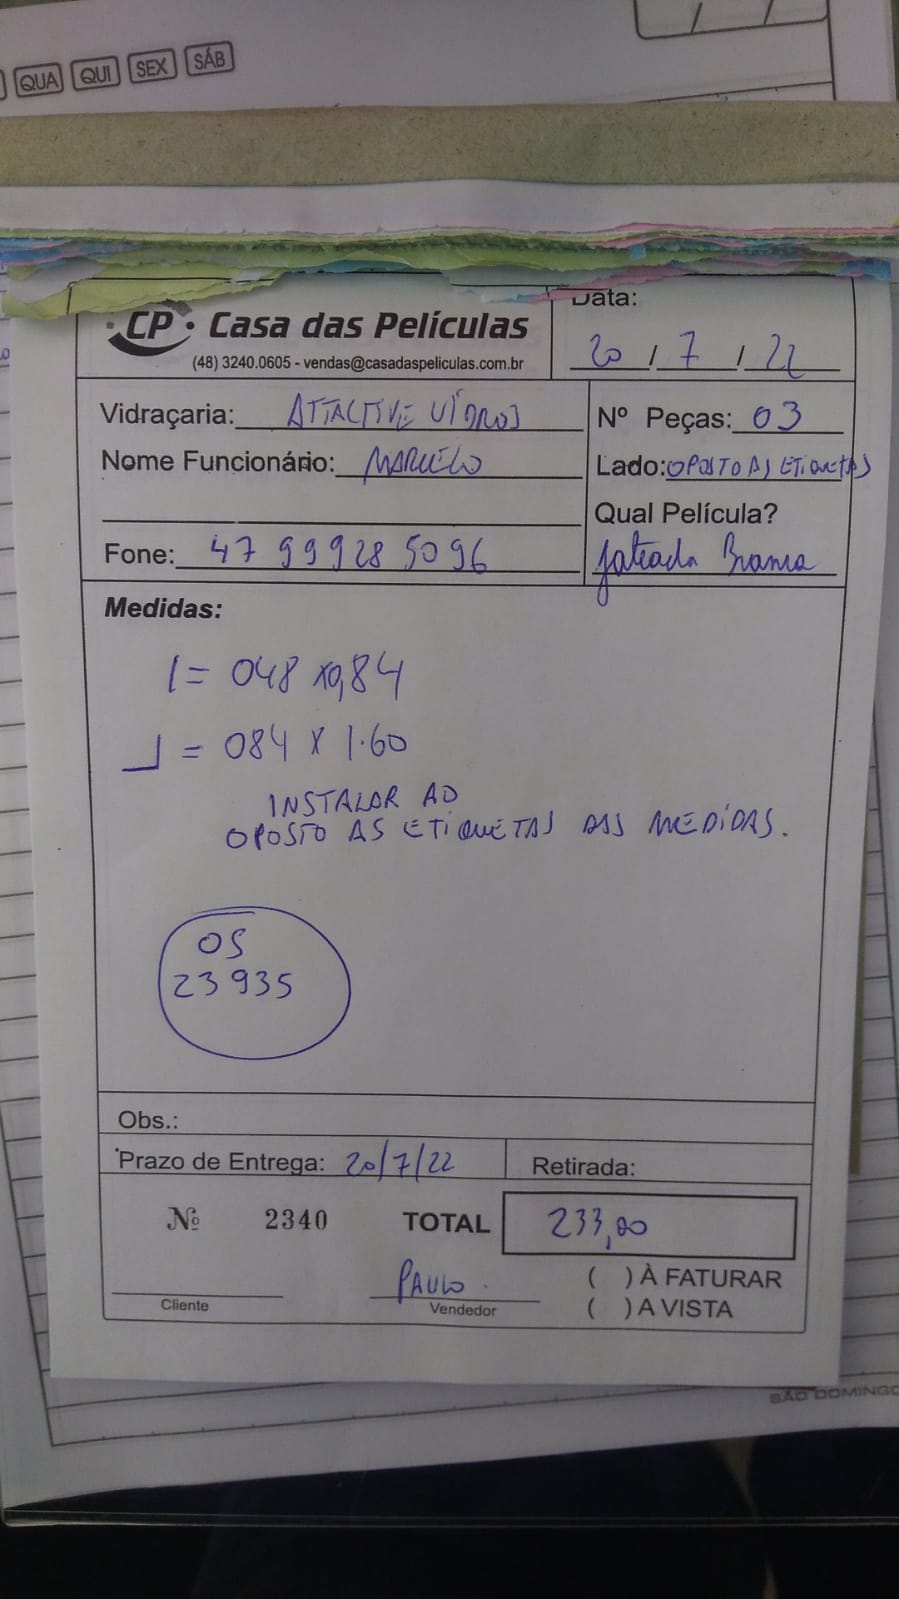 QUA QUI SEX SÁB
CP Casa das Películas
(48) 3240.0605 - vendas@casadaspeliculas.com.br
Data:
20 / 7 / 22
Vidraçaria: VIDROS
Nº Peças: 03
Nome Funcionário: MARCELO
Lado: OPOSTO AS ETIQUETAS
Qual Película?
Fone: 47 999285096
Jateada Branca
Medidas:
1 = 048 x0,84
= 084 X 1.60
INSTALAR AO
OPOSTO AS ETIQUETAS DAS MEDIDAS.
OS
23935
Obs.:
Prazo de Entrega: 20/7/22
Retirada:
Nº 2340 TOTAL 233,00
PAULO
( ) À FATURAR
Cliente
Vendedor
( ) A VISTA
SÃO DOMINGO